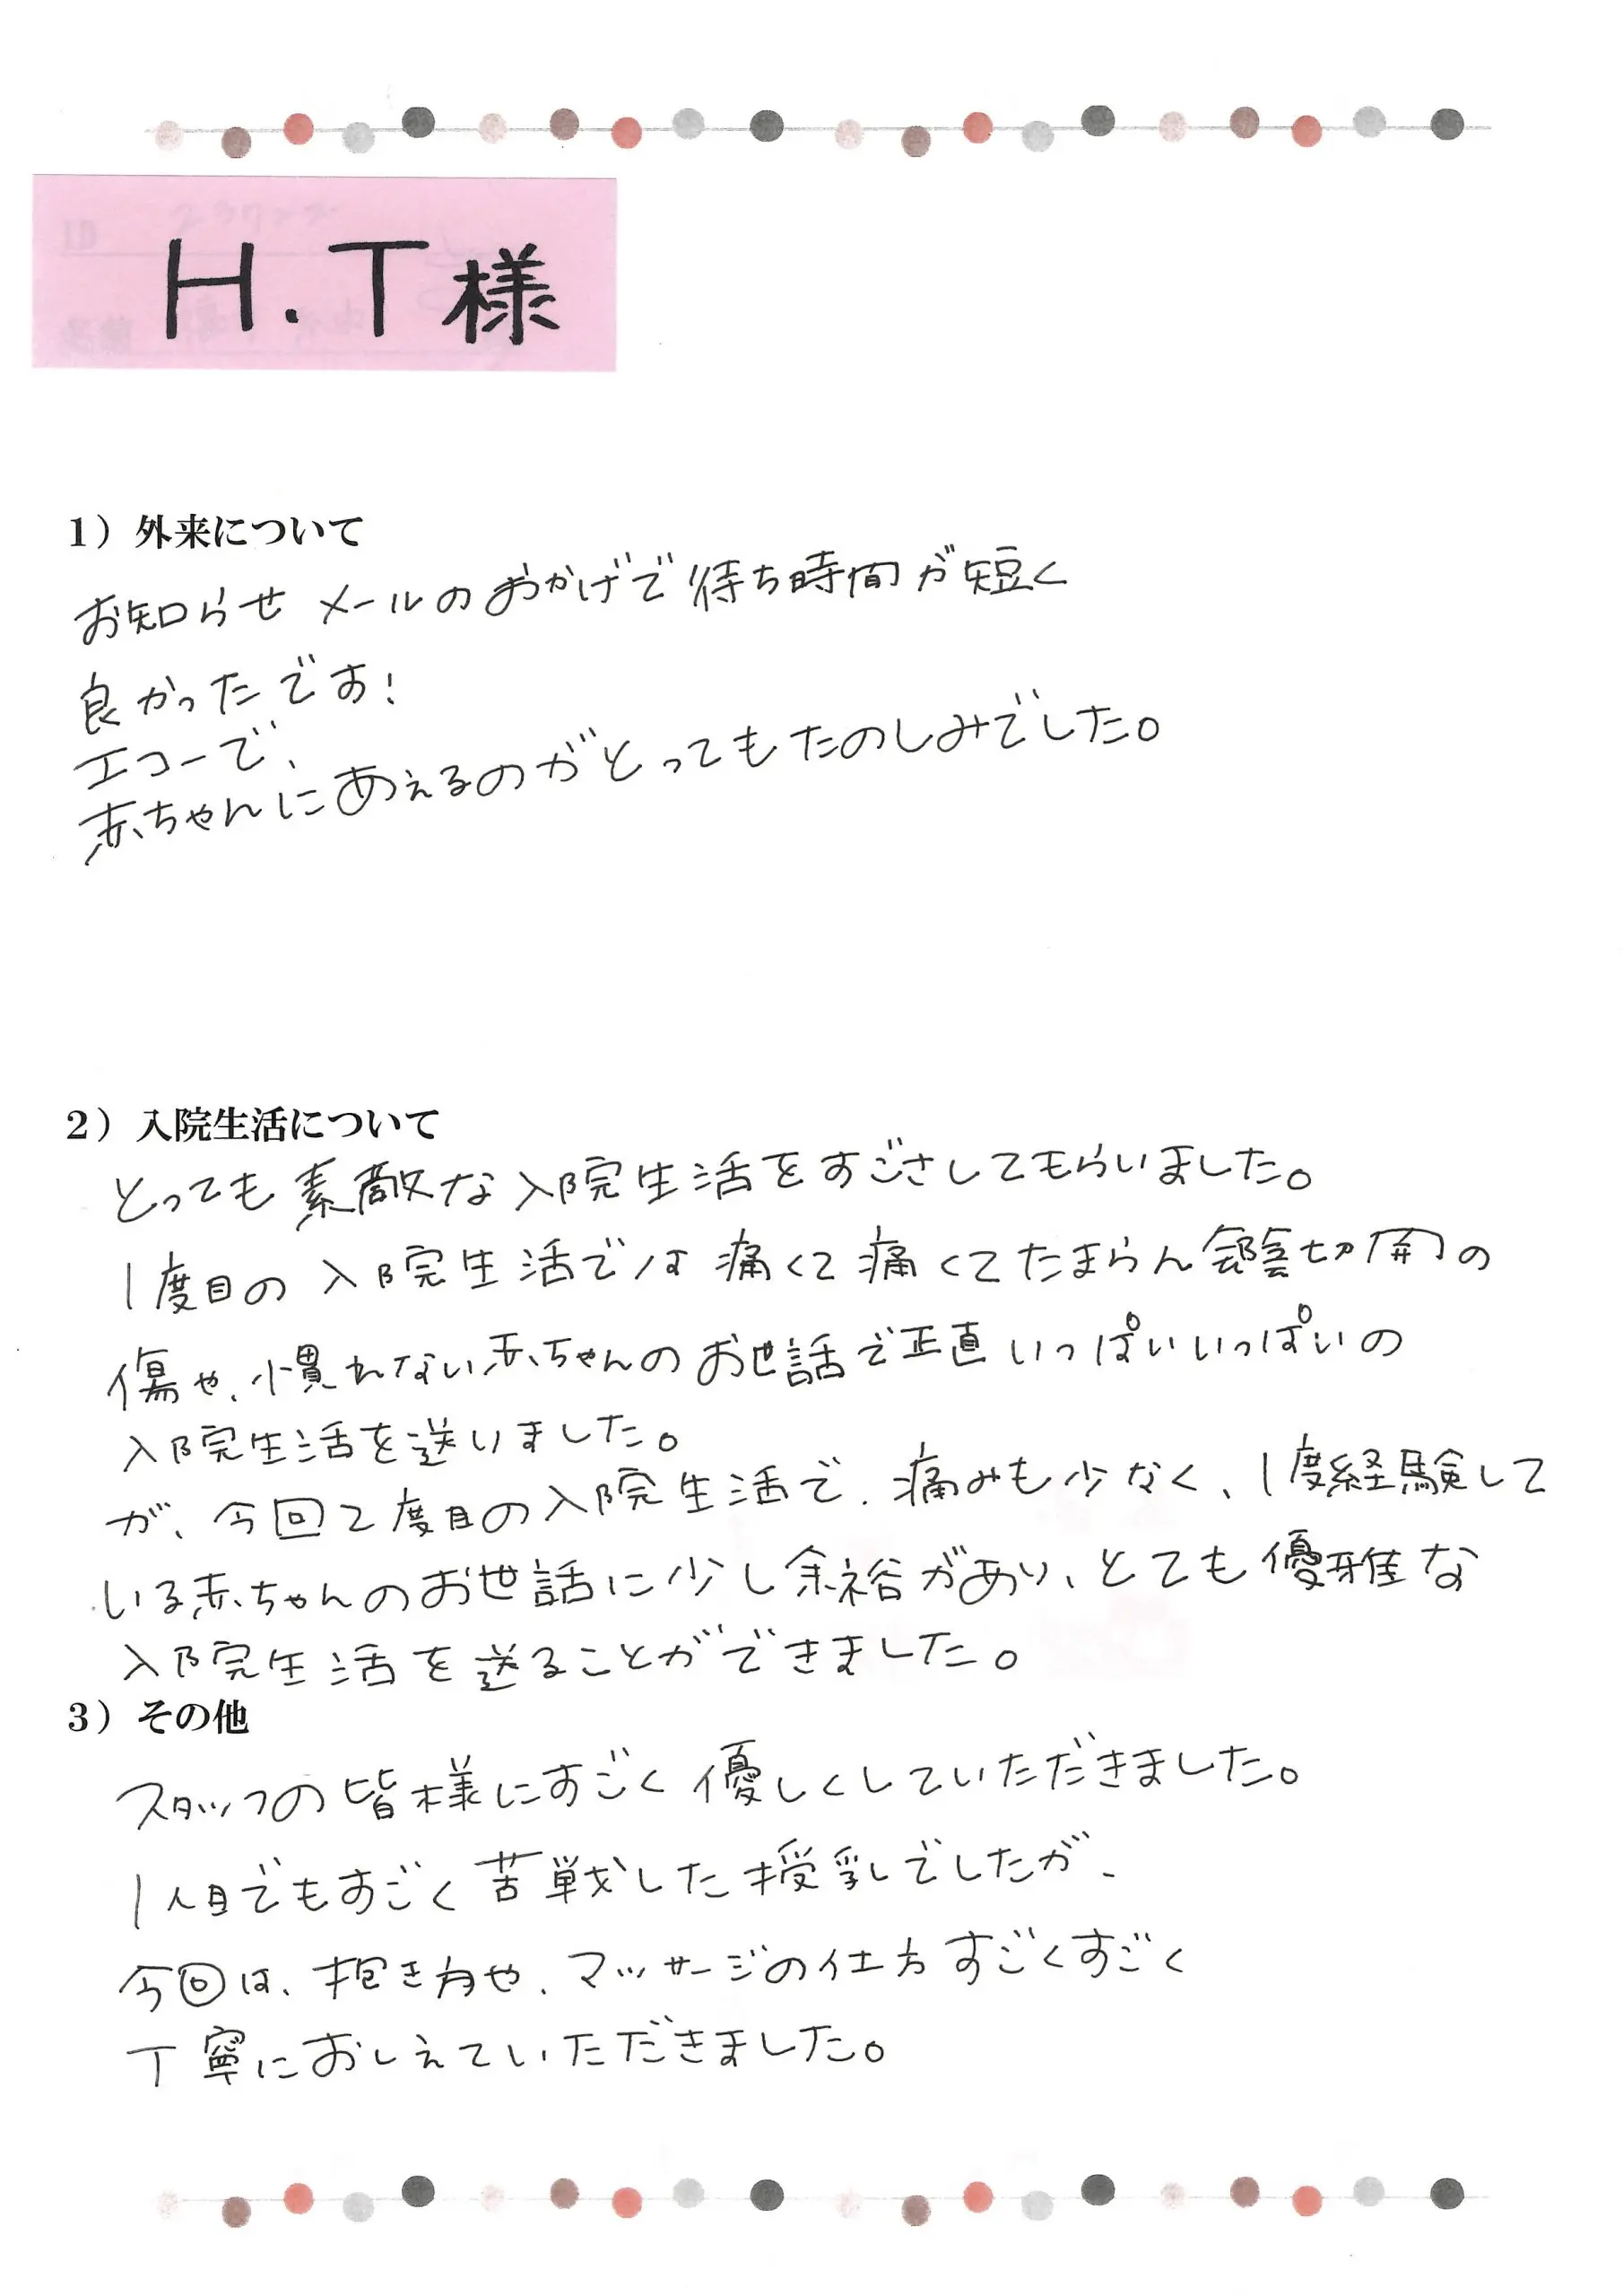 H.T様
1）外来について
お知らせメールのおかげで待ち時間が短く
良かったです!
エコーで、
赤ちゃんにあえるのがとってもたのしみでした。
2）入院生活について
とっても素敵な入院生活をすごさしてもらいました。
1度目の入院生活では痛くて痛くてたまらん会陰切開の
傷や、慣れない赤ちゃんのお世話で正直いっぱいいっぱいの
入院生活を送りました。
が、今回2度目の入院生活で、痛みも少なく、1度経験して
いる赤ちゃんのお世話に少し余裕があり、とても優雅な
入院生活を送ることができました。
3）その他
スタッフの皆様にすごく優しくしていただきました。
1人目でもすごく苦戦した授乳でしたが、
今回は、抱き方や、マッサージの仕方すごくすごく
丁寧におしえていただきました。